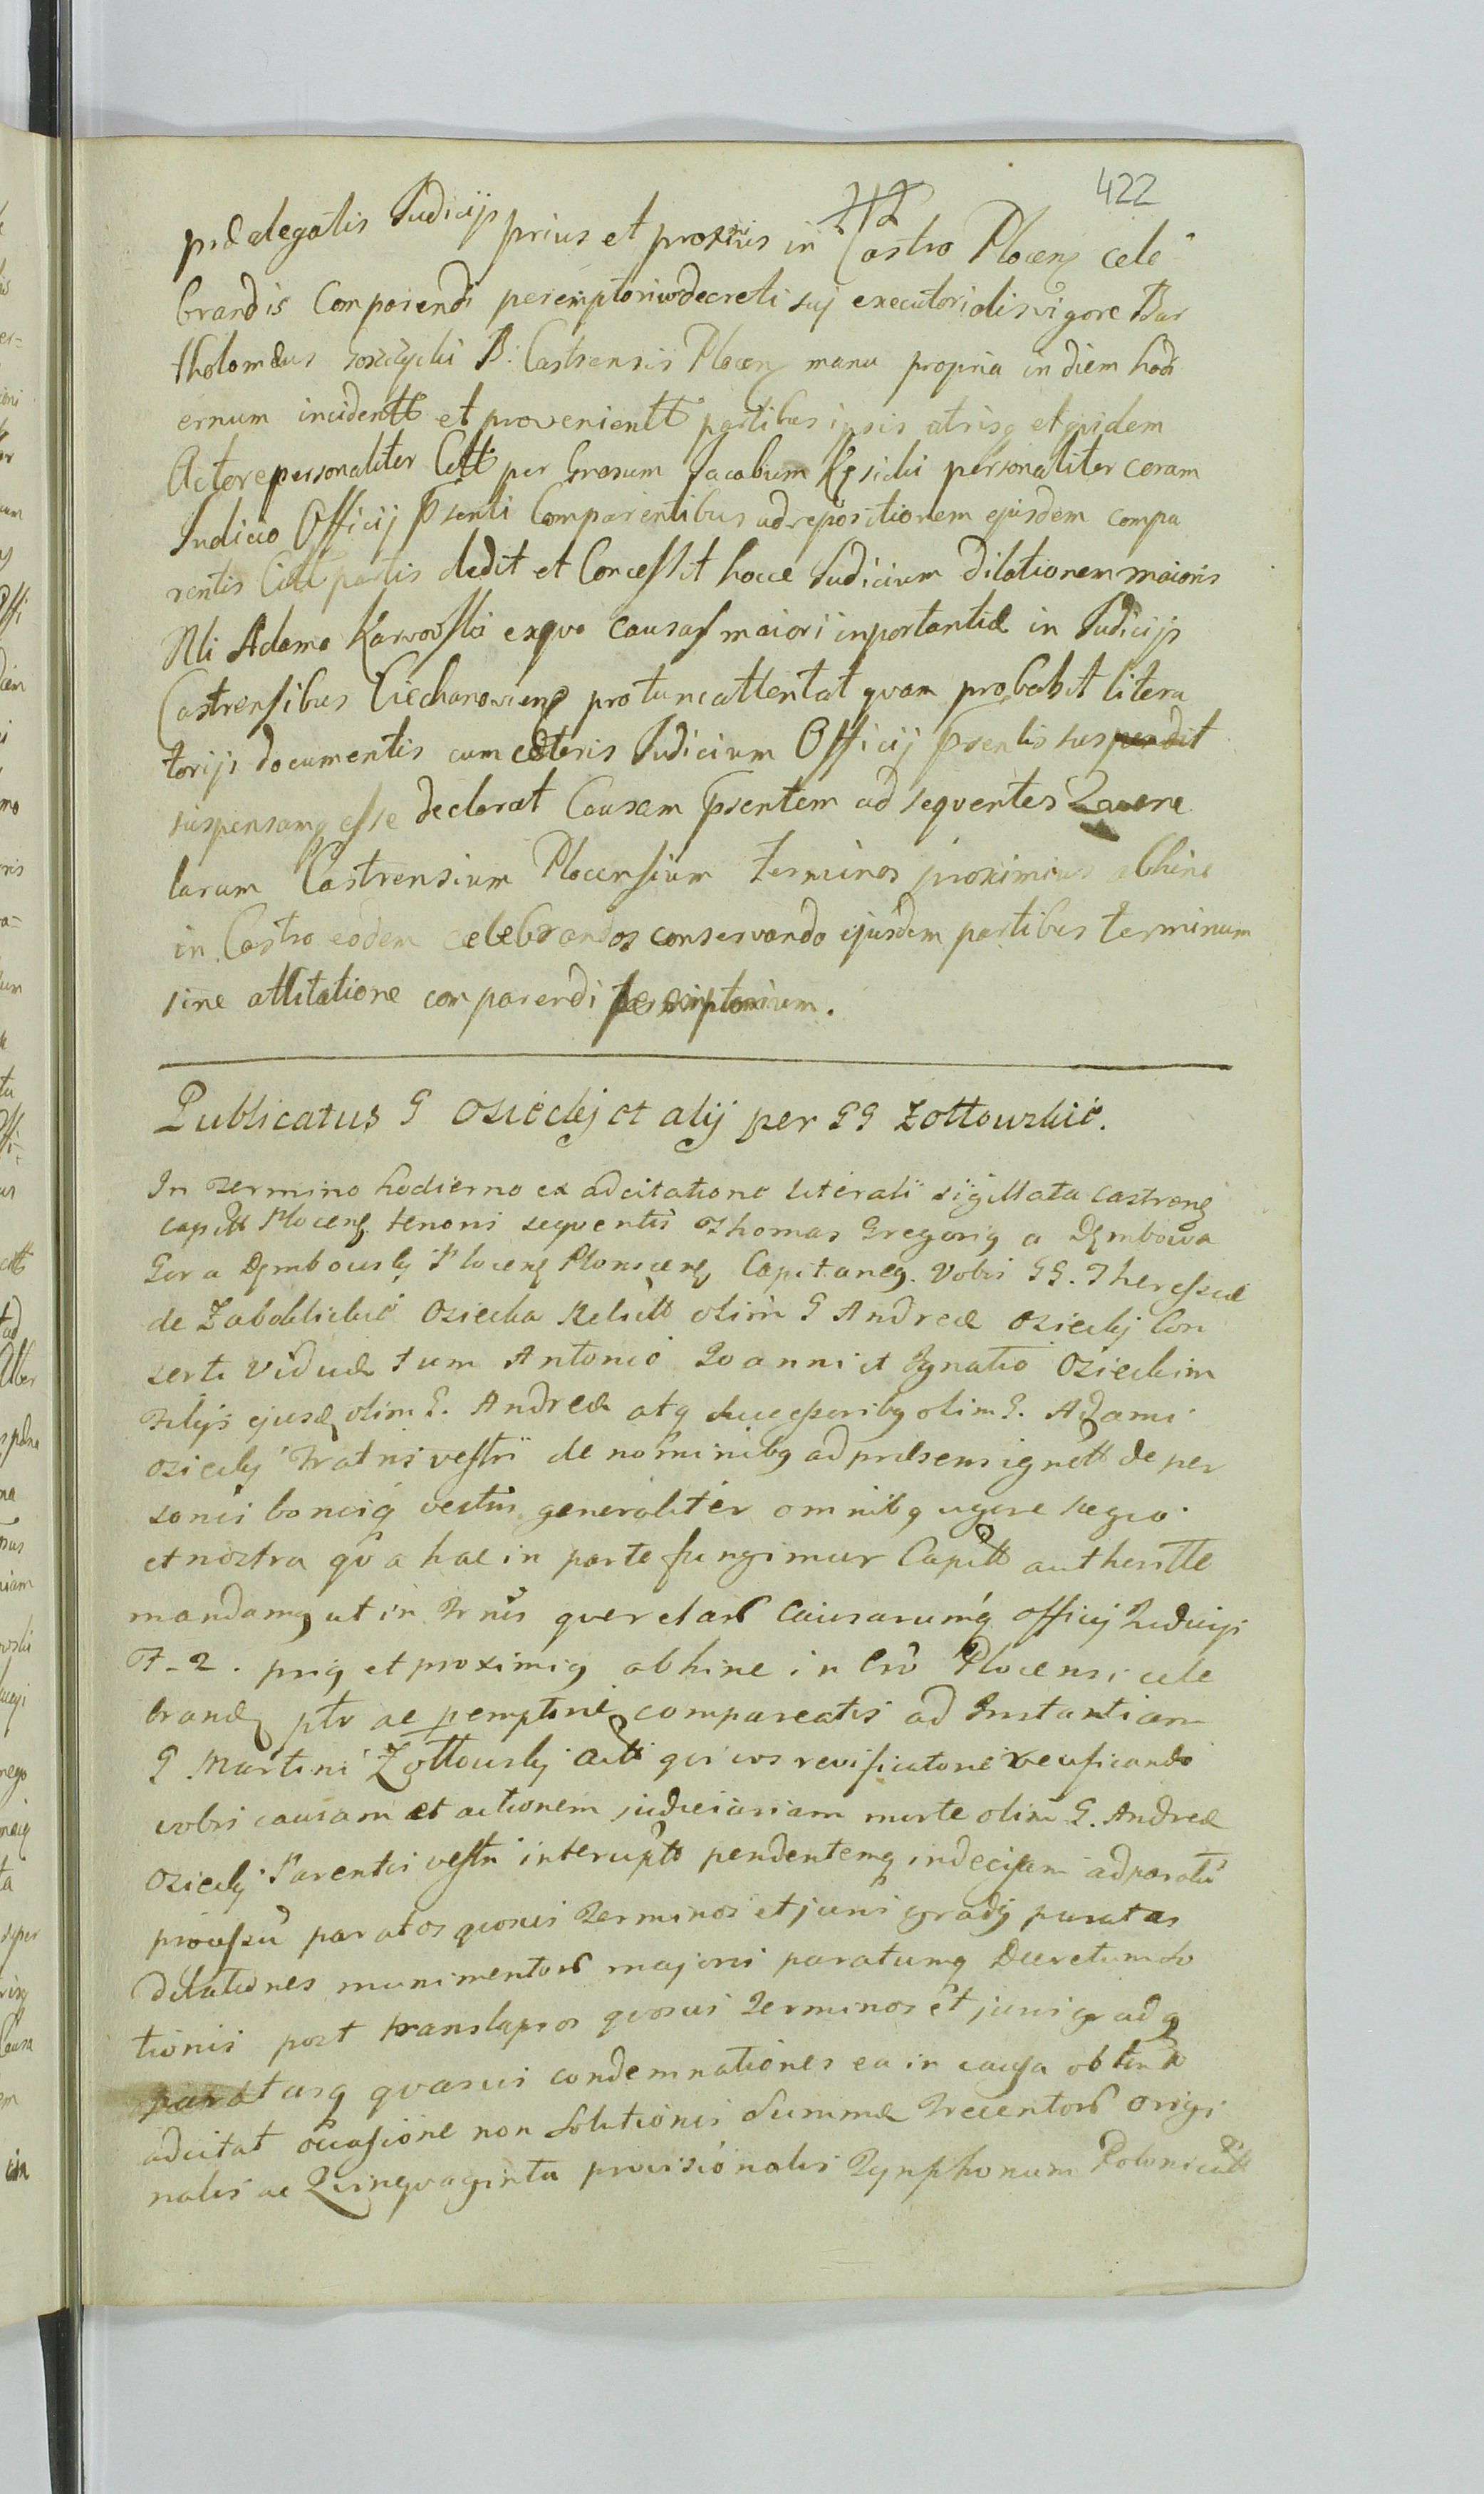 422
prædlegatis Judicijs prius et proximis in Castro Plocen cele
brandis Comparendi peremptorium decreti sui executorialis vigore Bar
tholomæus B: Castrensis Plocen manu propria in diem hodi
ernum incidentt et provenientt partibus ipsis atrisq et quidem
Actore personaliter Citt per Grosum Jacobum Kęsicki personaliter coram
Judicio Officij Psenti Comparentibus ad repositionem ejusdem compa
rentis Citt partis dedit et Concessit hocce Judicium Dilationem maioris
Nli Adamo Karwosski exquo causas maiori inportantiæ in Judicijs
Castrensibus Ciechanoviens pro tunc attentat quam probabit litera
torijs documentis cum cæteris Judicium Officij Psentis suspendit
suspensamq esse declarat Causam Psentem ad sequentes Quere
larum Castrensium Plocensium Terminos proximius abhinc
in Castro eodem celebrandos conservando ejusdem partibus terminum
sine attitatione comparendi peremptorium.
Publicatus G Osiecky et alij per GG Zołtowskie.
In Termino hodierno ex adcitatione literali sigillata Castrens
Capitt Plocens tenoris sequentis Thomas Gregorig a Dęmbowa
Gora Dęmbowsky Plocens Plonscens Capitaneg. Vobis GG. Theressiæ
de Zaboklickie Osiecka Relictt olim G Andreæ Osiecky Con
sorti viduæ tum Antonio Joanni et Ignatio Osieckim
Filijs ejusd olim G. Andreæ atq successoribg olim G. Adami
Osiecky Fratris vestri de nominibg ad præsens ignott de per
sonis bonisq vestris generaliter omnibg
et nostra qua hac in parte fungimur Capitt authoritte
mandamg ut in Trnis querelarł Causarumq officij Judicijs
F-2. prig et proximig abhinc in Crô Plocensi cele
brand ptr ac pemptorie compareatis ad Instantiam
G Martini Zołtowsky Actt qui vos
vobis causam et actionem judiciariam morte olim G. Andreæ
Osiecky Parentis vestri interuptt pendentemq indecisam ad paratu
processu paratos quosvis Terminos et juris gradg paratas
dilationes munimentorł majoris paratumq Decretum So
tionis post translapsos quosvis Terminos et juris gradg
paratasq quasvis condemnationes ea in causa obtent
adcitat occasione non Solutionis Summæ Trecentorł origi
nalis ac Quinquaginta provisionalis Tynphonum Polonicatt